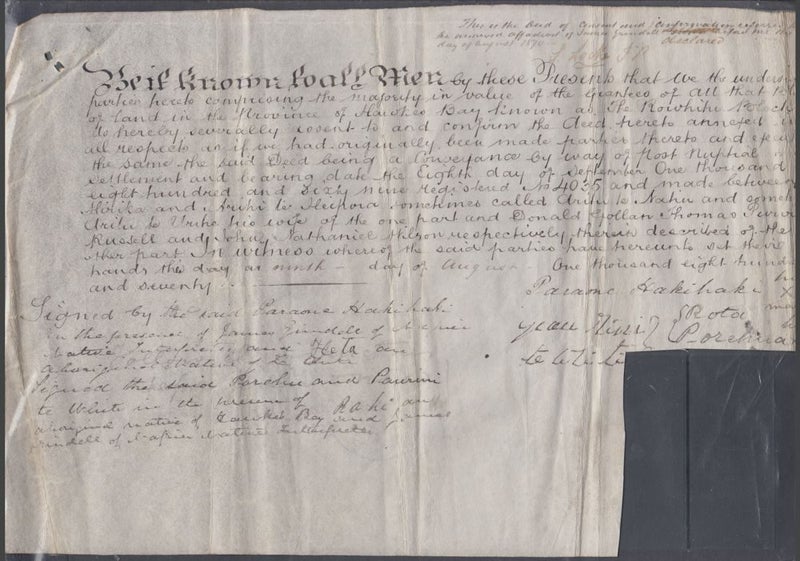 This is the Deed of Consent and Confirmation referred
the annexed affidavit of James Grindell
day of August 1870
declared
Be it known to all Men by these Presents that we the undersi
parties hereto comprising the majority in value of the Grantees of all that
of Land in the Province of Hawkes Bay known as The Rowhitu Block
do hereby severally assent to and confirm the Deed hereto annexed in
all respects as if we had originally been made parties thereto and exec
the same the said Deed being a Conveyance by way of Post Nuptial
Settlement and bearing date the Eighth day of September One thousand
eight hundred and Sixty nine registered No 4035 and made between
and Arihi te sometimes called Arihi te Nahu and somet
Arihi te his wife of the one part and Donald Gollan Thomas Purvis
Russell and John Nathaniel Wilson respectively therein described of the
other part In witness whereof the said parties have hereunto set their
hands this day a ninth day of August One thousand eight hund
and seventy
Paraone Hakihaki
Signed by the said Paraone Hakihaki
in the presence of James Grindell of Napier
Rota
Native Interpreter and Heta an
Porehua
aboriginal Native of
Signed the said Porehu and Paurini
te Whiti in the presence of Raki an
aboriginal native of Hawkes Bay and James
Grindell of Napier Native Interpreter